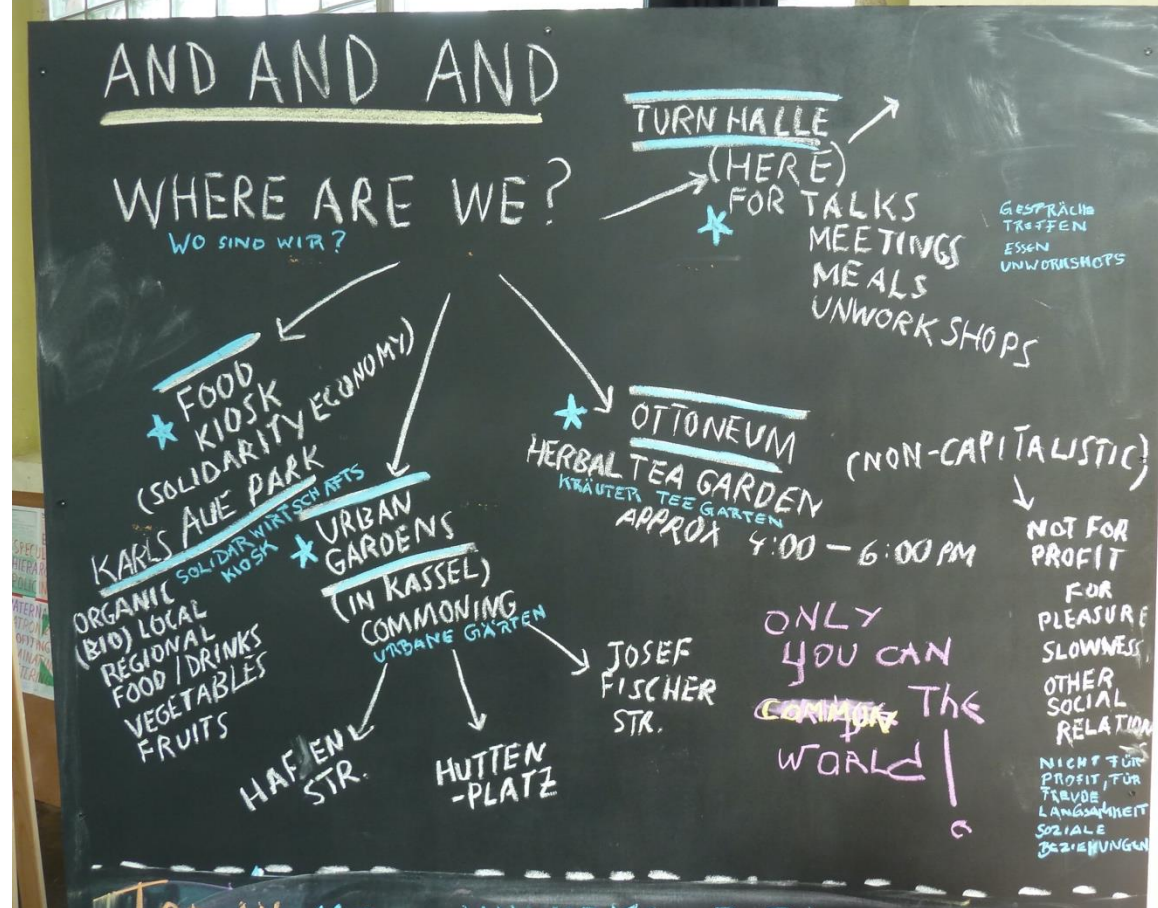 AND AND AND
WHERE ARE WE?
WO SIND WIR?
TURNHALLE
(HERE)
FOR TALKS
MEETINGS
MEALS
UNWORKSHOPS
GESPRÄCHE
TREFFEN
ESSEN
UNWORKSHOPS
FOOD
KIOSK
(SOLIDARITY ECONOMY)
KARLS AUE PARK
SOLIDARWIRTSCHAFTS
KIOSK
ORGANIC
(BIO) LOCAL
REGIONAL
FOOD/DRINKS
VEGETABLES
FRUITS
URBAN
GARDENS
(IN KASSEL)
COMMONING
URBANE GÄRTEN
HAFEN
STR.
HUTTEN
-PLATZ
JOSEF
FISCHER
STR.
OTTONEUM
HERBAL TEA GARDEN
KRÄUTER TEE GARTEN
APPROX 4:00 - 6:00 PM
(NON-CAPITALISTIC)
NOT FOR
PROFIT
FOR
PLEASURE
SLOWNESS
OTHER
SOCIAL
RELATION
NICHT FÜR
PROFIT, FÜR
FREUDE
LANGSAMKEIT
SOZIALE
BEZIEHUNGEN
ONLY
YOU CAN
COMMON THE
WORLD!